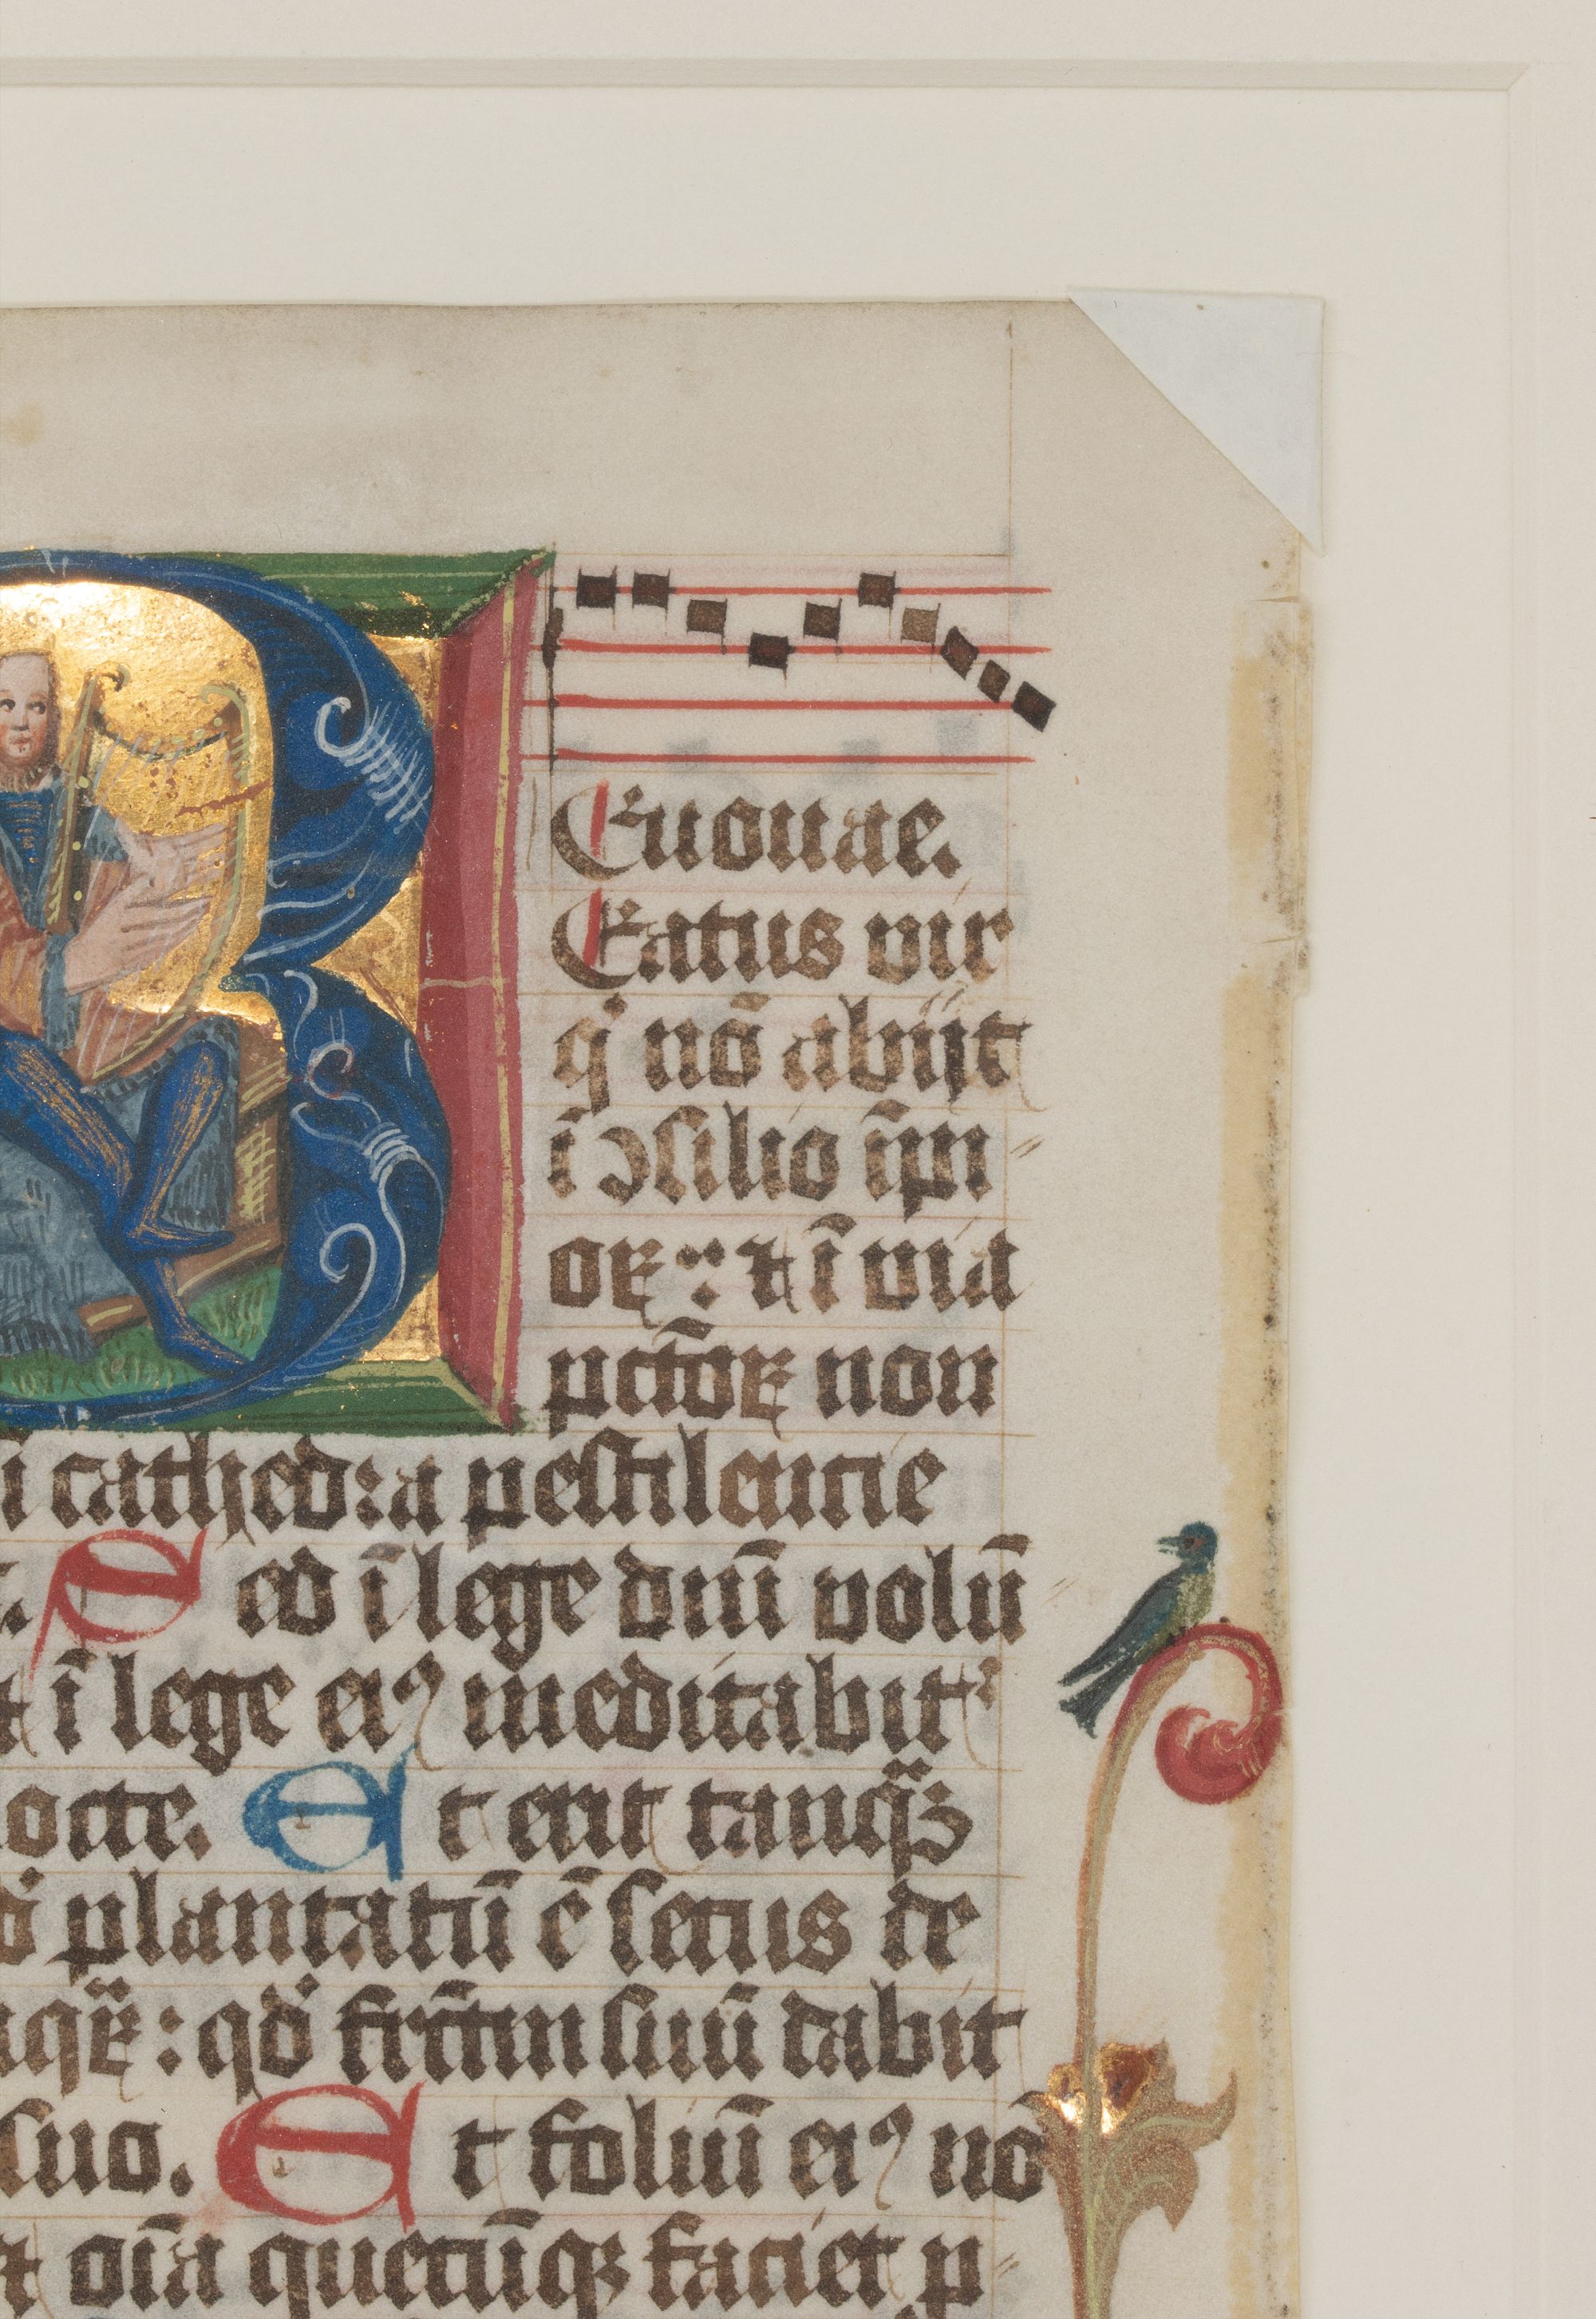 Euouae.
Eatus vir
q nō abijt
ī ↄsilio īpi
oꝝ: et ī via
pctōꝝ non
ī cathedra pestilentie
Sed ī lege dnī volū
et ī lege eiꝰ meditabit᷑
nocte. Et erit tanqꝫ
plantatū ē secus de
aqꝝ: qd fructum suū dabit
suo. Et foliū eiꝰ nō
et oīa quecūqꝫ faciet p